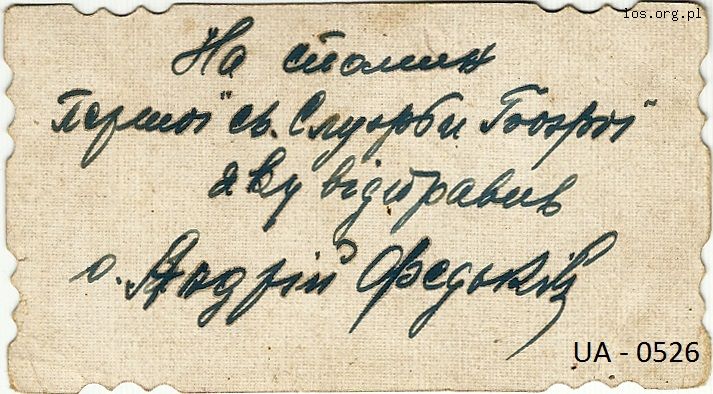 ios.org.pl
На спомин
Першої "св. Служби Божої"
яку відправив
о. Андрій Федьків
UA - 0526